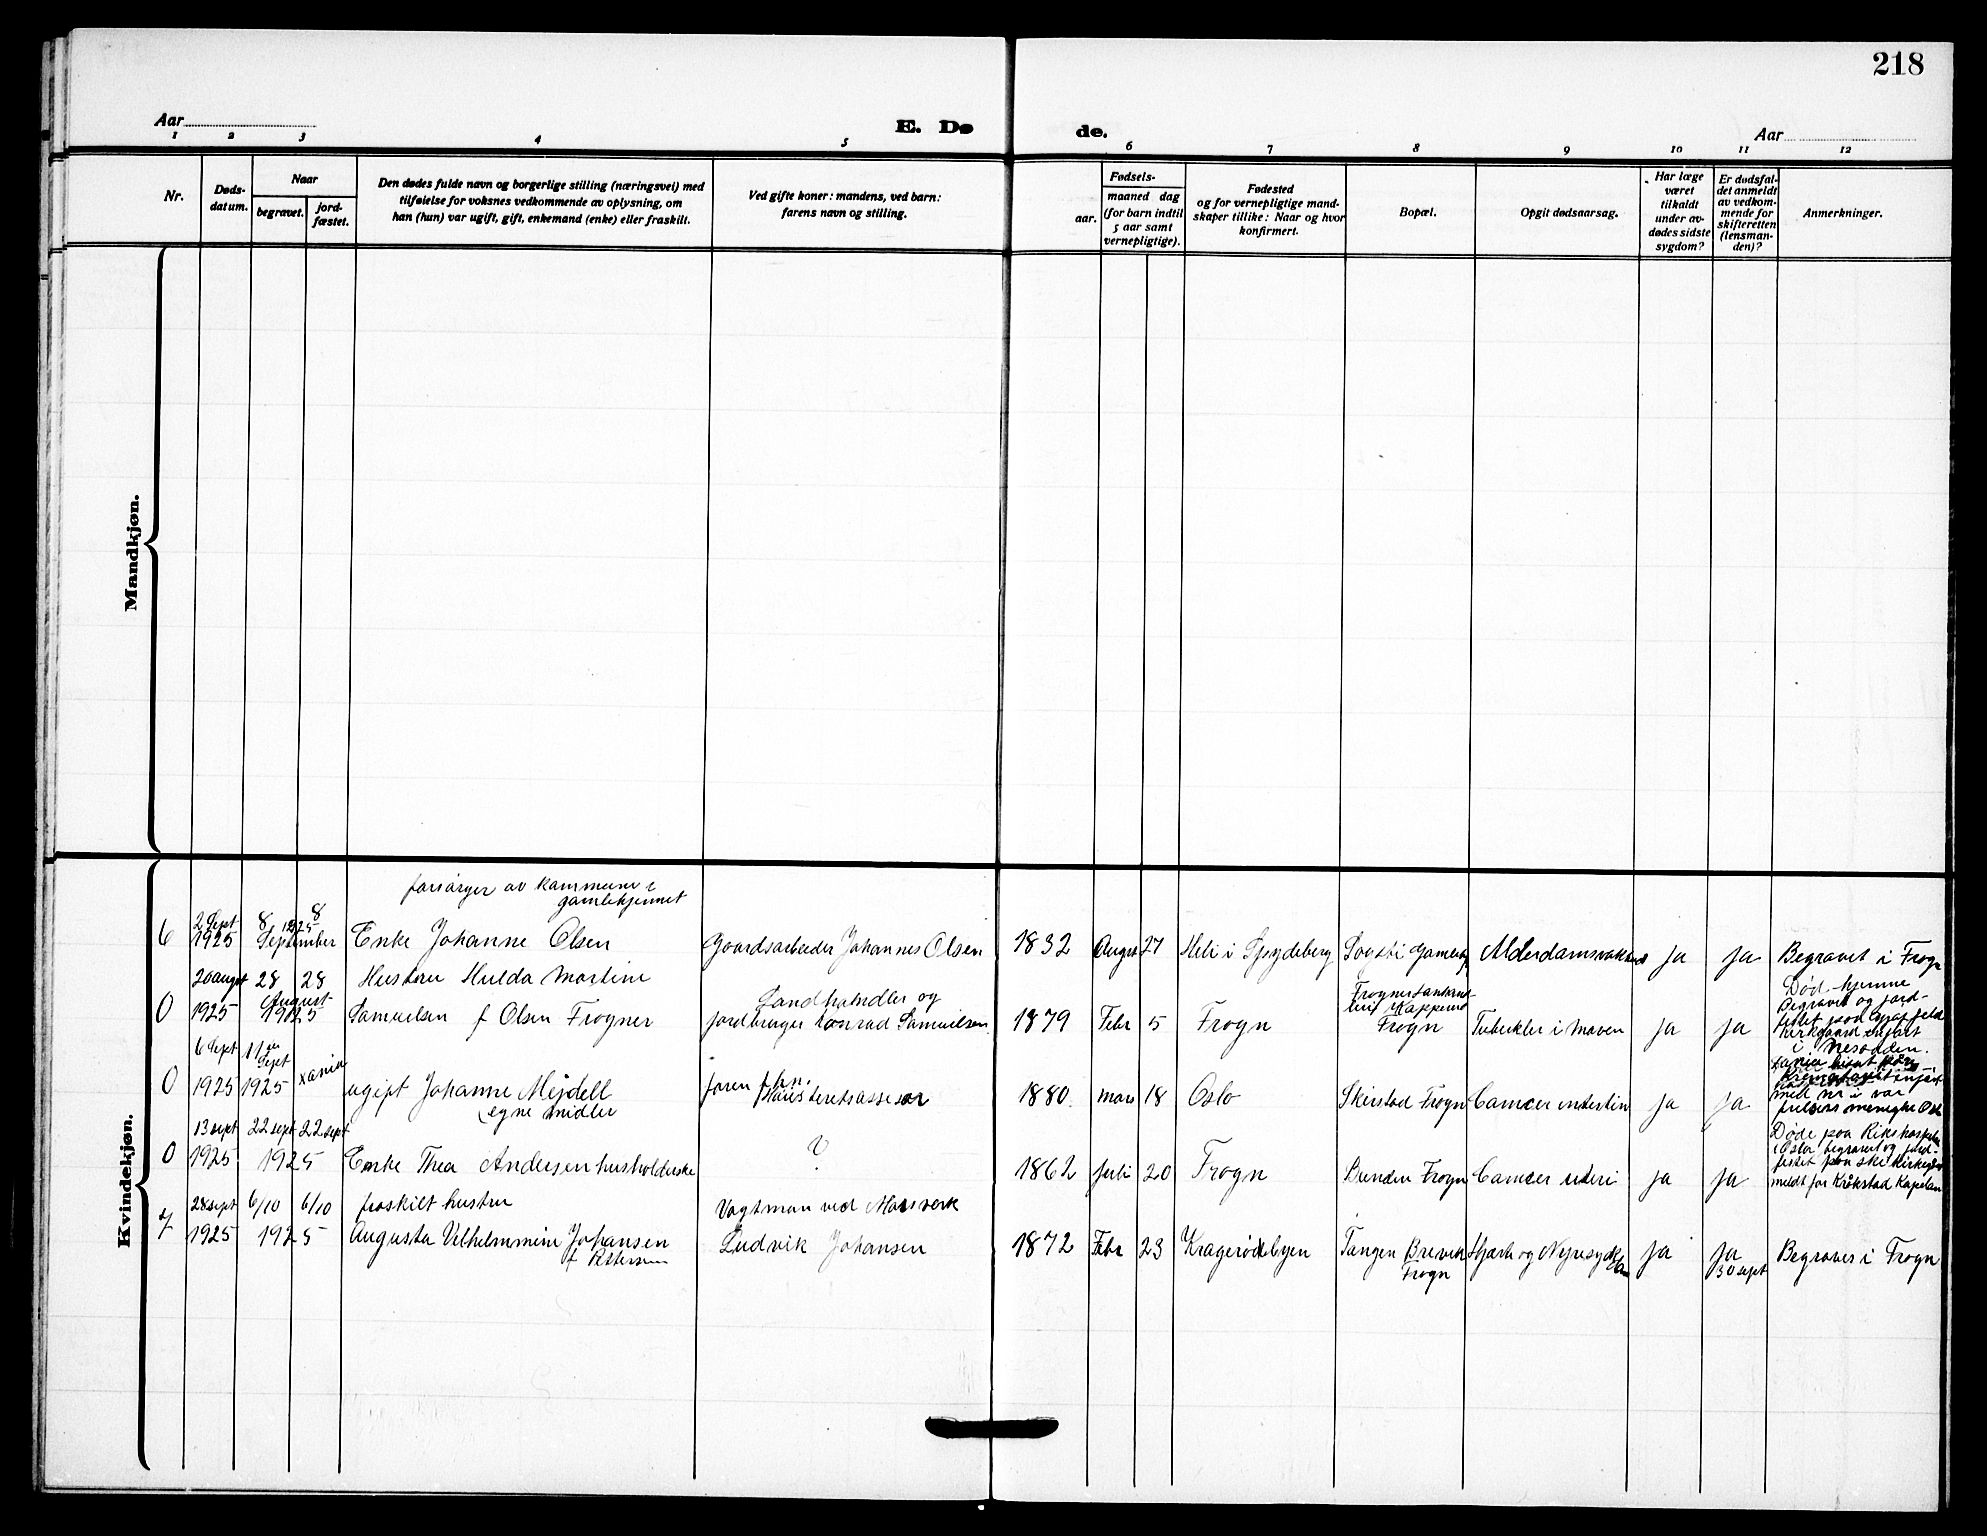 218
Aar
E. Dø
de.
Aar
1 2 3 4 5 6 7 8 9 10 11 12
Nr.
Døds-
datum.
Naar
begravet.
jord-
fæstet.
Den dødes fulde navn og borgerlige stilling (næringsvei) med
tilføielse for voksnes vedkommende av oplysning, om
han (hun) var ugift, gift, enkemand (enke) eller fraskilt.
Ved gifte koner: mandens, ved barn:
farens navn og stilling.
Fødsels-
aar.
maaned dag
(for barn indtil
5 aar samt
vernepligtige).
Fødested
og for vernepligtige mand-
skaper tillike: Naar og hvor
konfirmert.
Bopæl.
Opgit dødsaarsag.
Har læge
været
tilkaldt
under av-
dødes sidste
sygdom?
Er dødsfal-
det anmeldt
av vedkom-
mende for
skifteretten
(lensman-
den)?
Anmerkninger.
Mandkjøn.
Kvindekjøn.
forsørges av kommunen i
gamlehjemmet
6 2 Sept 1925 8 8 1925 September Enke Johanne Olsen Gaardsarbeider Johannes Olsen 1832 August 27 Heli i Spydeberg Ja Ja Begravet i Frogn
20 august 28 28 Hustru Hulda Martine
0 1925 August 1925 Samuelsen f Olsen Frogner Landhandler og
jordbruger Konrad Samuelsen 1879 Febr 5 Frogn Frogn Tuberkler i Maven Ja Ja Død hjemme
Begravet og jord-
kirkegaard
i Nesodden.
6 Sept 11 Sept
0 1925 1925 xania ugift Johanne Mejdell
egne midler
faren 1880 Mars 18 Oslo Skirstad Frogn Ja Ja
13 sept 22 sept 22 sept
0 1925 1925 Enke Thea Andersen husholderske ? 1862 Juli 20 Frogn Frogn Cancer uteri Ja Ja Døde paa Rikshospital
i Oslo begravet og jord-
festet paa Ski Kirkegaard
meldt for Kråkstad Kapelan
28 sept 6/10 6/10 fraskilt hustru Vagtman ved
7 1925 1925 Augusta Vilhelmmine Johansen
f Pettersen
Ludvik Johansen 1872 Febr 23 Kragerø Tangen
Frogn
Hjerte og Nyresyk Ja Ja
30 sept
Begraves i Frogn